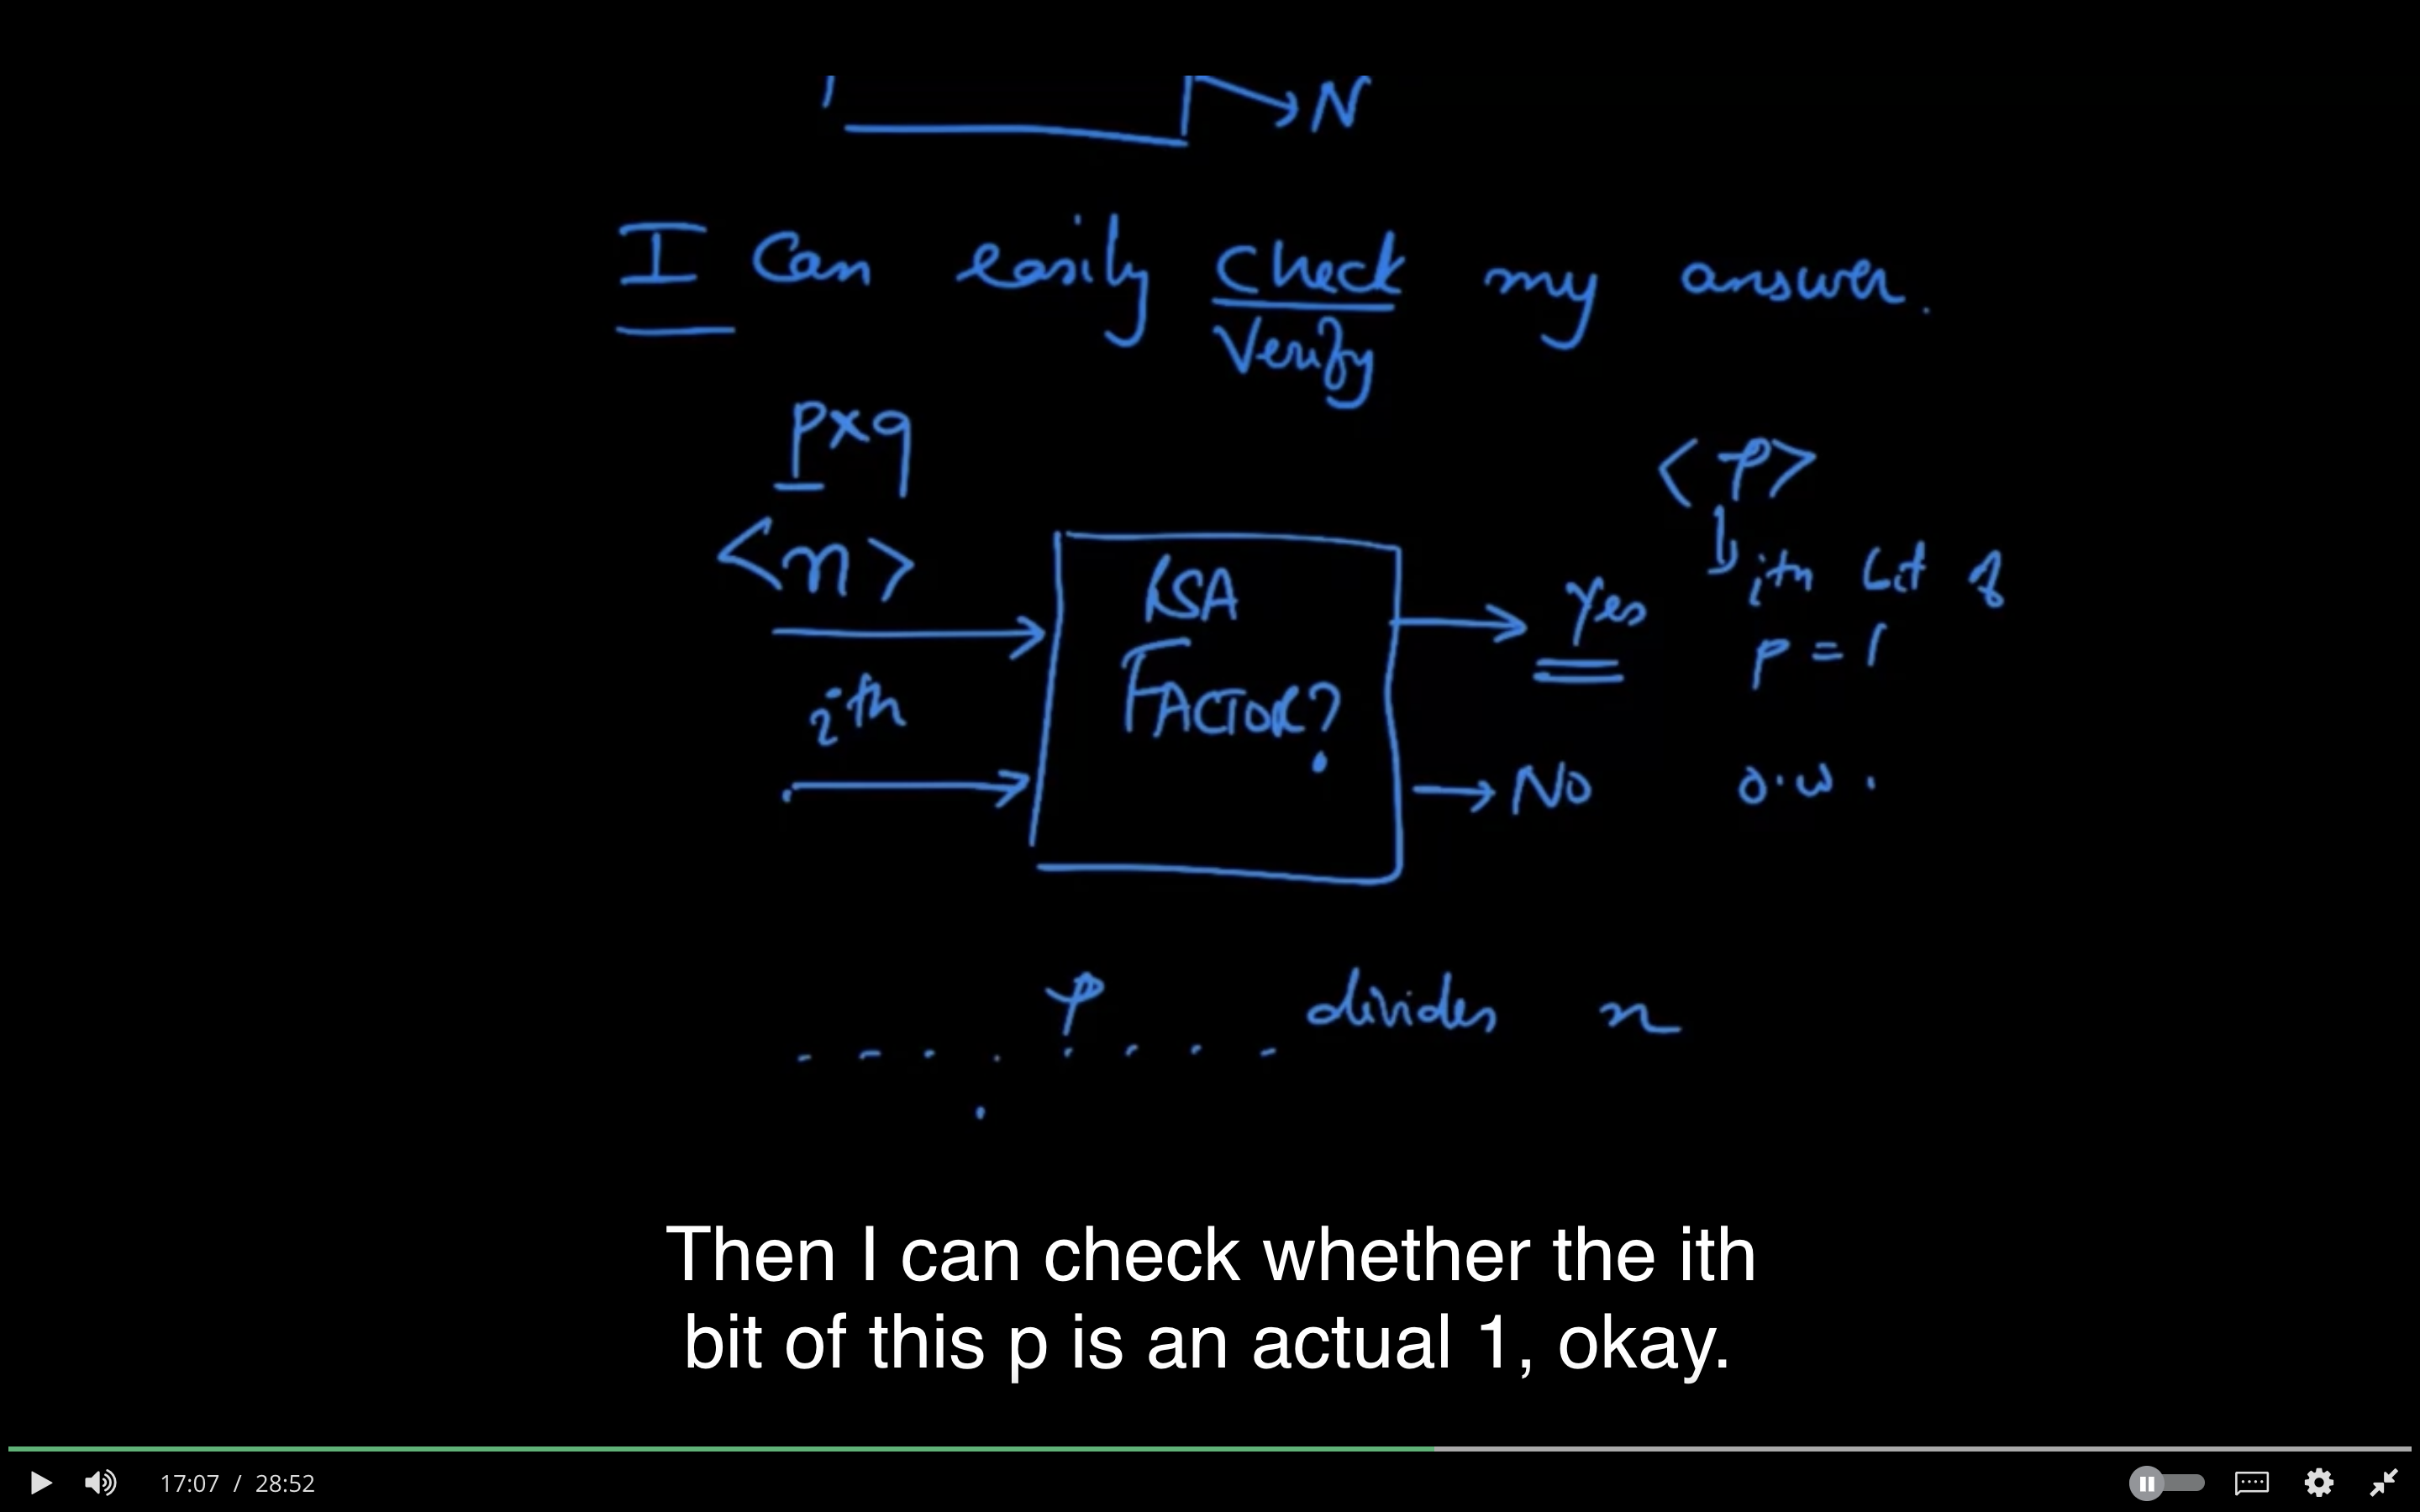 N
I Can easily Check my answer.
Verify
p×q
<p>
<n>
RSA
FACTOR?
Yes
ith bit of
p = 1
ith
No
o.w.
p divides n
Then I can check whether the ith
bit of this p is an actual 1, okay.
17:07 / 28:52